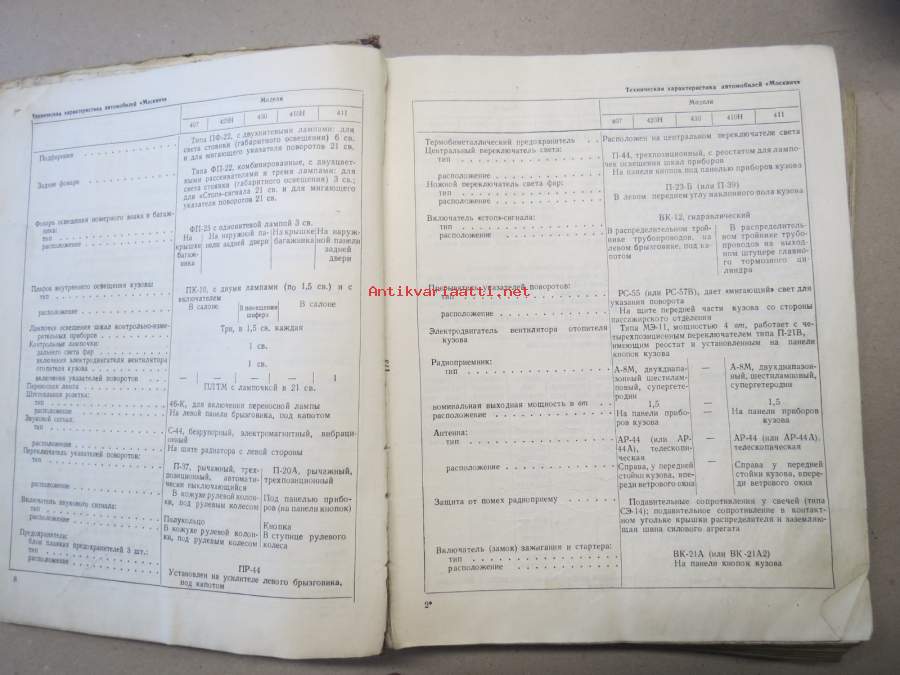 Техническая характеристика автомобилей «Москвич»
Модели
407
423Н
430
410Н
411
Подфарники
Типа ПФ-22, с двухнитевыми лампами: для
света стоянки (габаритного освещения) 6 св.
и для мигающего указателя поворотов 21 св.
Задние фонари
Типа ФП-22, комбинированные, с двухцвет-
ными рассеивателями и тремя лампами: для
света стоянки (габаритного освещения) 3 св.;
для «Стоп»-сигнала 21 св. и для мигающего
указателя поворотов 21 св.
Фонарь освещения номерного знака и багаж-
ника:
тип
ФП-25 с однонитевой лампой 3 св.
расположение
На крышке багаж-
ника
На наружной па-
нели задней двери
На крышке
багажника
На наруж-
ной панели
задней
двери
Плафон внутреннего освещения кузова:
тип
ПК-10, с двумя лампами (по 1,5 св.) и с
включателем
расположение
В салоне
В помещении
шофера
В салоне
Лампочки освещения шкал контрольно-изме-
рительных приборов
Три, в 1,5 св. каждая
Контрольные лампочки:
дальнего света фар
1 св.
включения электродвигателя вентилятора
отопителя кузова
1 св.
включения указателей поворотов
— — — — 1
Переносная лампа
ПЛТМ с лампочкой в 21 св.
Штепсельная розетка:
тип
46-К, для включения переносной лампы
расположение
На левой панели брызговика, под капотом
Звуковой сигнал:
тип
С-44, безрупорный, электромагнитный, вибраци-
онный
расположение
На щите радиатора с левой стороны
Переключатель указателей поворотов:
тип
П-37, рычажный, трех-
позиционный, автомати-
чески выключающийся
П-20А, рычажный,
трехпозиционный
расположение
В кожухе рулевой колон-
ки, под рулевым колесом
Под панелью прибо-
ров (на панели кнопок)
Включатель звукового сигнала:
тип
Полукольцо
Кнопка
расположение
В кожухе рулевой колон-
ки, под рулевым колесом
В ступице рулевого
колеса
Предохранители:
блок плавких предохранителей 3 шт.:
тип
ПР-44
расположение
Установлен на усилителе левого брызговика,
под капотом
8
Техническая характеристика автомобилей «Москвич»
Модели
407
423Н
430
410Н
411
Термобиметаллический предохранитель
Расположен на центральном переключателе света
Центральный переключатель света:
тип
П-44, трехпозиционный, с реостатом для лампо-
чек освещения шкал приборов
расположение
На панели кнопок под панелью приборов кузова
Ножной переключатель света фар:
тип
П-23-Б (или П-39)
расположение
В левом переднем углу наклонного пола кузова
Включатель «стоп»-сигнала:
тип
ВК-12, гидравлический
расположение
В распределительном трой-
нике трубопроводов, на
левом брызговике, под ка-
потом
В распределитель-
ном тройнике трубо-
проводов на выход-
ном штуцере главно-
го тормозного ци-
линдра
Прерыватель указателей поворотов:
тип
РС-55 (или РС-57В), дает «мигающий» свет для
указания поворота
расположение
На щите передней части кузова со стороны
пассажирского отделения
Электродвигатель вентилятора отопителя
кузова
Типа МЭ-11, мощностью 4 вт, работает с че-
тырехпозиционным переключателем типа П-21В,
имеющим реостат и установленным на панели
кнопок кузова
Радиоприемник:
тип
А-8М, двухдиапа-
зонный шестилам-
повый, суперге те-
родин
—
А-8М, двухдиапазон-
ный, шестиламповый,
супергетеродин
номинальная выходная мощность в вт
1,5
—
1,5
расположение
На панели прибо-
ров кузова
—
На панели приборов
кузова
Антенна:
тип
АР-44 (или АР-
44А), телескопи-
ческая
—
АР-44 (или АР-44А),
телескопическая
расположение
Справа, у передней
стойки кузова, впе-
реди ветрового окна
—
Справа у передней
стойки кузова, впере-
ди ветрового окна
Защита от помех радиоприему
Подавительные сопротивления у свечей (типа
СЭ-14); подавительное сопротивление в контакт-
ном угольке крышки распределителя и заземляю-
щая шина силового агрегата
Включатель (замок) зажигания и стартера:
тип
ВК-21А (или ВК-21А2)
расположение
На панели кнопок кузова
2*
Antikvariaatti.net